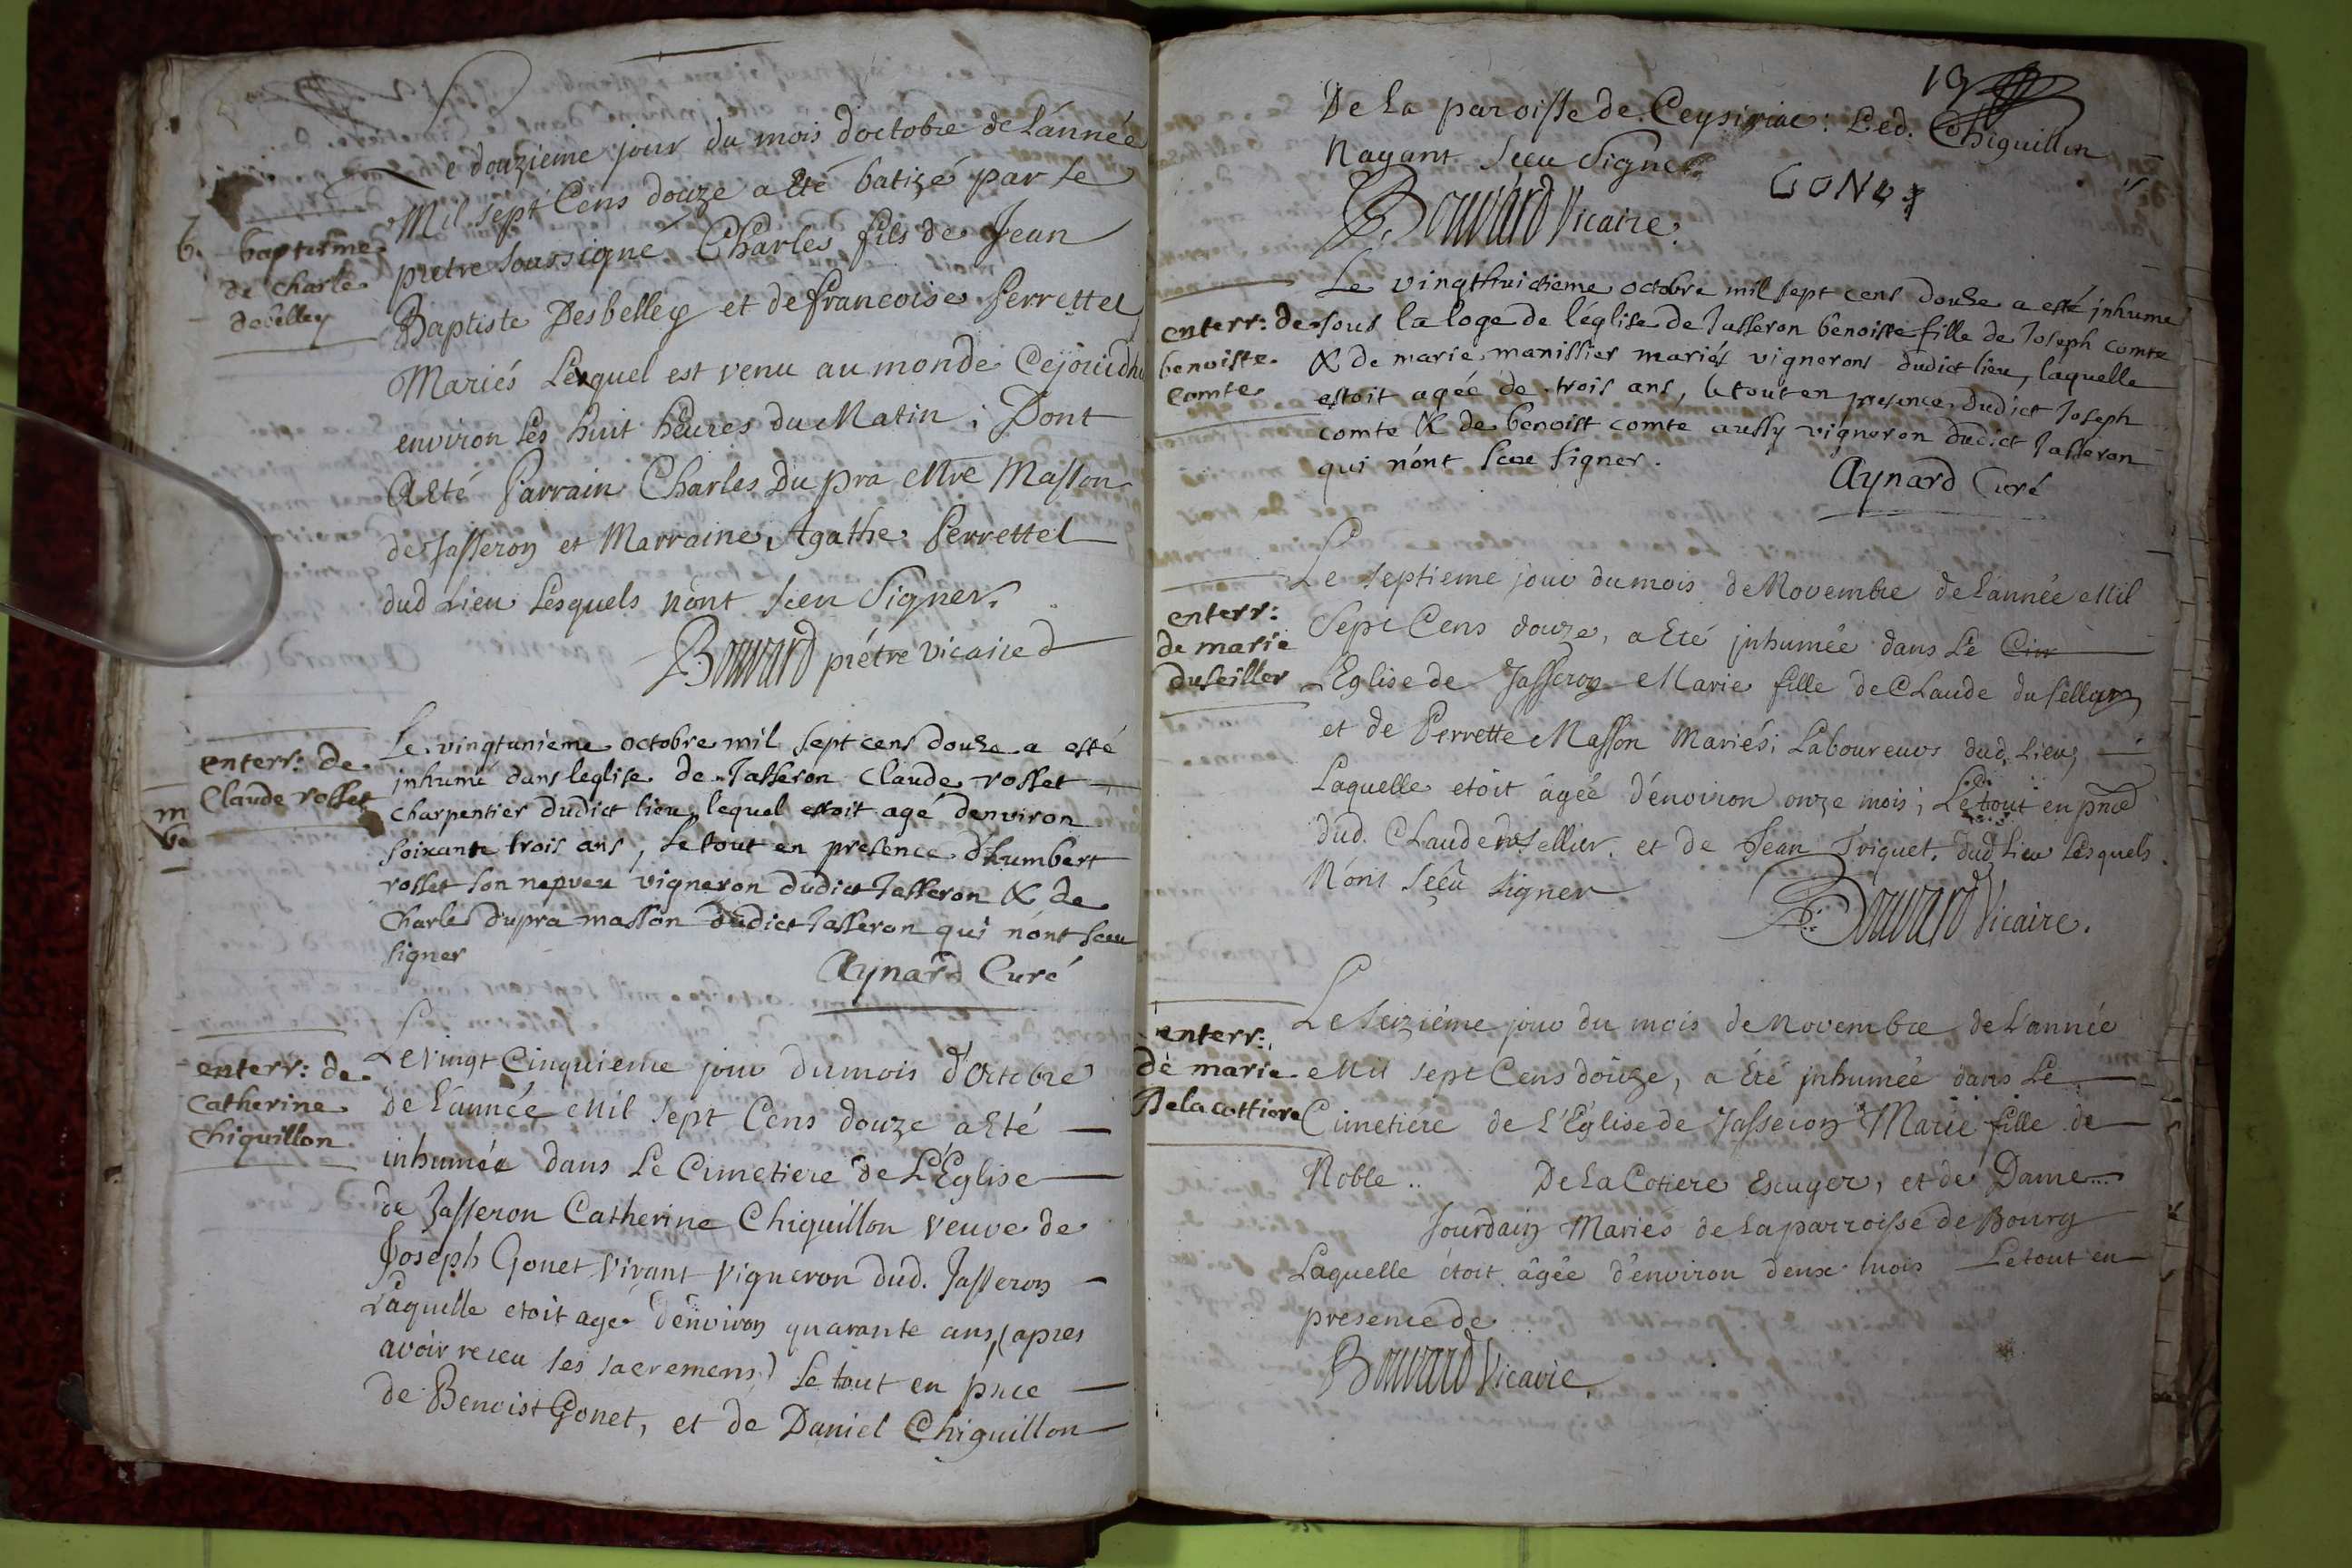 Le douzieme jour du mois d'octobre de l'année
Mil sept Cens douze a Eté batizé par le
b. baptesme
de charle
debelley
pretre soussigné Charles fils de Jean
Baptiste Desbelley et de francoise Perrettel
Mariés Lequel est venu au monde Cejourdhu
environ les huit heures du Matin; Dont
A Eté Parrain Charles Dupra Mre Masson
de Jasseron et Marraine Agathe Perrettel
dud Lieu Lesquels n'ont sceu Signer.
Bouvard prétre vicaire
enterr: de
Claude rosset
m
Ve
Le vingtunieme octobre mil sept cens douze a esté
inhumé dans leglise de Jasseron Claude rosset
charpentier dudict lieu lequel estoit agé denviron
soixante trois ans, le tout en presence d'humbert
rosset son nepveu vigneron dudict Jasseron & de
Charle dupra masson dudict Jasseron qui n'ont sceu
signer
Aynard Curé
enterr: de
Catherine
Chiquillon
Le vingt Cinquieme jour du mois d'Octobre
de l'année Mil sept Cens douze a Eté
inhumée dans Le Cimetiere de L'Eglise
de Jasseron Catherine Chiquillon veuve de
Joseph Gonet vivant vigneron dud. Jasseron
Laquelle etoit agée d'environ quarante ans, (apres
avoir receu ses sacremens) le tout en pnce
de Benoist Gonet, et de Daniel Chiquillon
19
De La paroisse de Ceysiriac: Led. Chiquillon
Nayant sceu Signer
GONET
Bouvard Vicaire.
enterr: de
benoiste
comte
Le vingthuictieme octobre mil sept cens douze a esté inhumé
sous la loge de l'église de Jasseron benoiste fille de Joseph comte
& de marie manissier mariés vignerons dudict lieu, laquelle
estoit agée de trois ans, le tout en presence dudict Joseph
comte & de benoist comte aussy vigneron dudict Jasseron
qui n'ont sceu signer.
Aynard Curé
enterr:
de marie
duseiller
Le septieme jour du mois de Novembre de l'année Mil
Sept Cens douze, a Eté inhumée dans Le Cim
Eglise de Jasseron Marie fille de Claude du
et de Perrette Masson Mariés; Laboureurs dud. Lieu,
Laquelle etoit âgée d'environ onze mois; Le tout en pnce
dud. Claude du Sellier, et de Jean Triquet. dud Lieu Lesquels
N'ont sceû signer
Bouvard Vicaire.
enterr:
de marie
De la cottiere
Le seiziéme jour du mois de Novembre de L'année
Mil sept Cens douze, a Eté inhumée dans Le
Cimetiére de L'Eglise de Jasseron Marie fille de
Noble .. De La Cotiere Escuyer, et de Dame ...
Jourdain Mariés de la parroisse de Bourg
Laquelle étoit âgée d'environ deux mois Le tout en
presence de
Bouvard Vicaire.